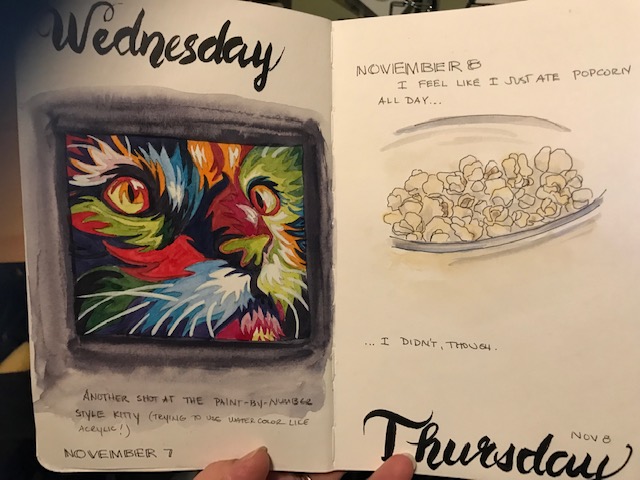 Wednesday
ANOTHER SHOT AT THE PAINT-BY-NUMBER
STYLE KITTY (TRYING TO USE WATERCOLOR LIKE
ACRYLIC!)
NOVEMBER 7
NOVEMBER 8
I FEEL LIKE I JUST ATE POPCORN
ALL DAY...
... I DIDN'T, THOUGH.
NOV 8
Thursday